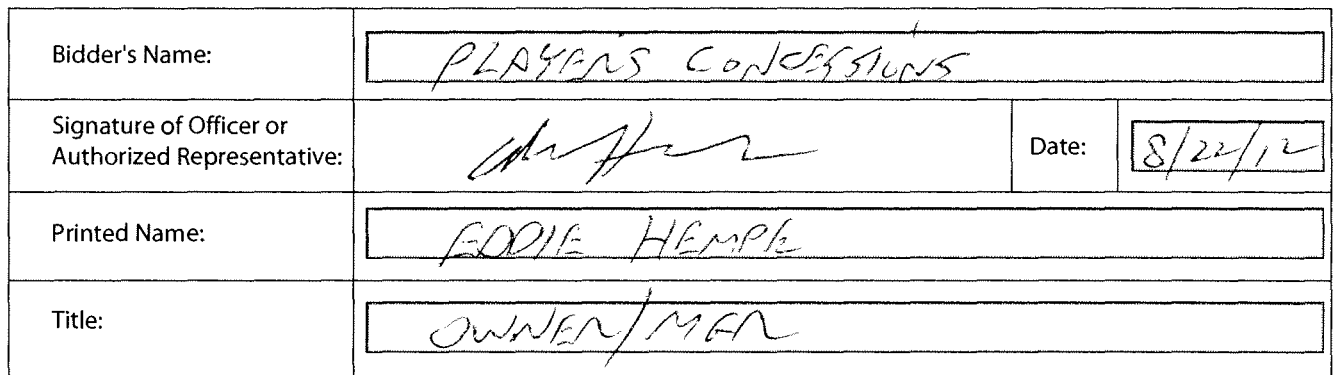 Bidder's Name: PLAYERS CONCESSIONS
Signature of Officer or
Authorized Representative: Date: 8/22/12
Printed Name: EDDIE HEMPE
Title: OWNER/MGR